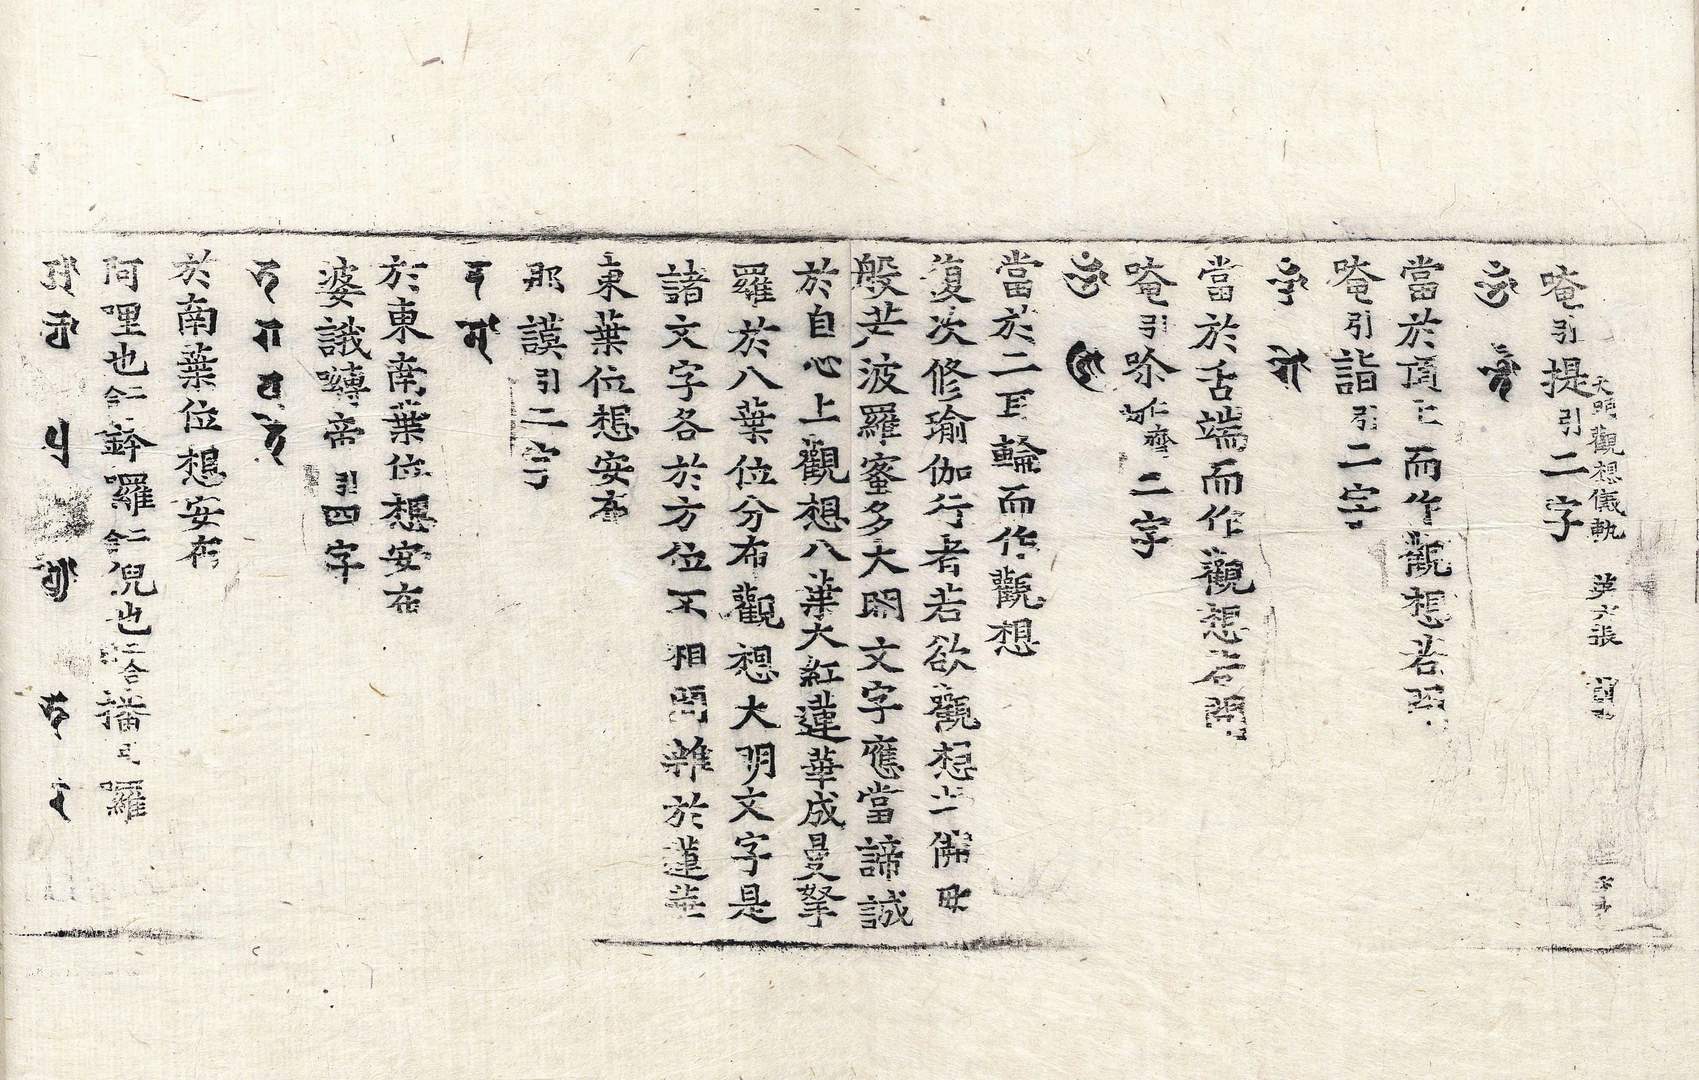 大明觀想儀軌 第六張
唵引提引二字
當於頂上而作觀想若問
唵引詣引二字
當於舌端而作觀想若問
唵引 二字
當於二耳輪而作觀想
復次修瑜伽行者若欲觀想一佛母
般若波羅蜜多大明文字應當諦誠
於自心上觀想八葉大紅蓮華成曼拏
羅於八葉位分布觀想大明文字是
諸文字各於方位不相間雜於蓮華
東葉位想安布
那謨引二字
於東南葉位想安布
婆誐嚩帝引四字
於南葉位想安布
阿哩也二合鉢囉二合倪也二合播引囉